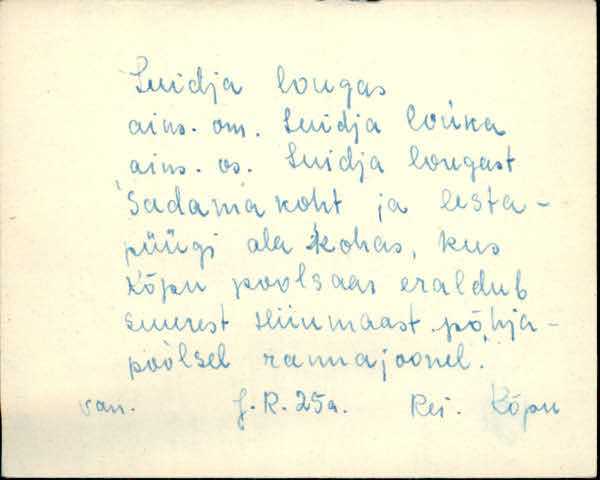 Luidja lougas
ains. om. Luidja louka
ains. os. Luidja lougast
"Sadama koht ja lesta-
püügi ala kohas, kus
Kõpu poolsaar eraldub
suurest Hiiumaast põhja-
poolsel rannajoonel."
van. J.R. 25a. Rei. Kõpu